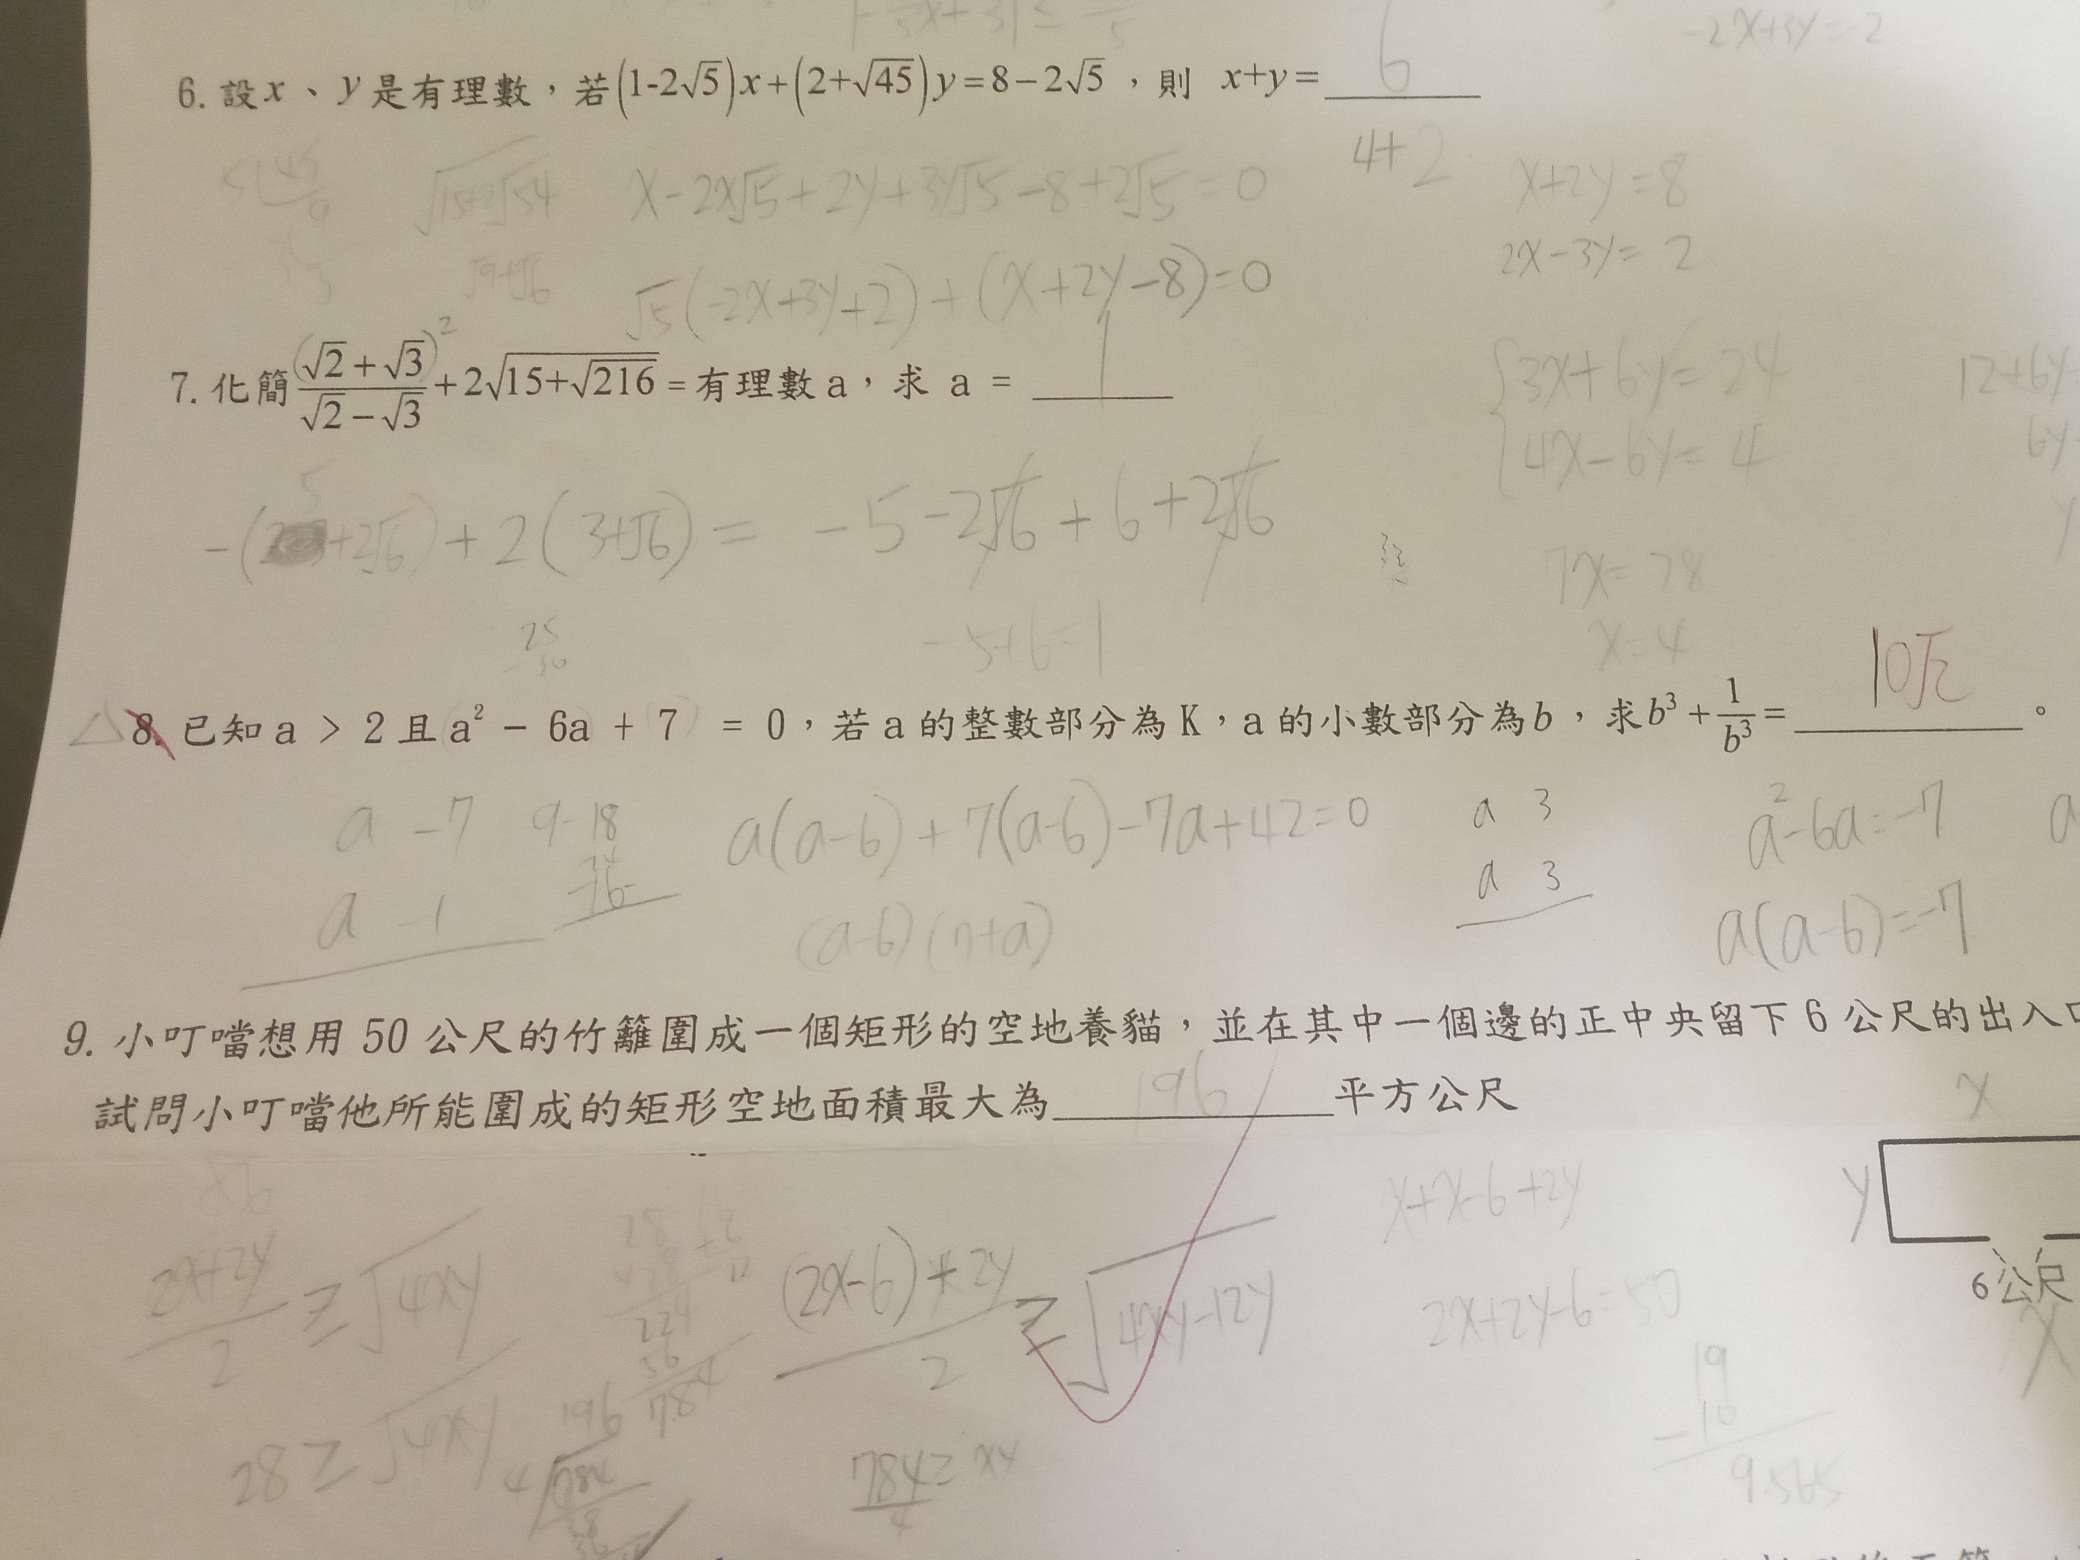 -2x+3y=2
6. 設x、y是有理數，若(1-2√5)x+(2+√45)y=8−2√5，則 x+y= 6
4+2
x-2x√5+2y+3y√5-8+2√5=0
x+2y=8
2x-3y=2
√5(-2x+3y+2)+(x+2y-8)=0
7. 化簡(√2+√3)²/(√2−√3)+2√(15+√216)=有理數a，求 a = 1
3x+6y=24
4x-6y=4
-(5+2√6)+2(3+√6)= -5-2√6+6+2√6
7x=28
-5+6=1
x=4
△8. 已知a > 2且a² − 6a + 7 = 0，若a的整數部分為K，a的小數部分為b，求b³+1/b³= 10√2 。
a -7 9-18 a(a-6)+7(a-6)-7a+42=0 a 3 a²-6a=-7
a -1 a 3 a(a-6)=-7
(a-6)(7+a)
9. 小叮噹想用50公尺的竹籬圍成一個矩形的空地養貓，並在其中一個邊的正中央留下6公尺的出入
試問小叮噹他所能圍成的矩形空地面積最大為 196 平方公尺
x
56
x+x-6+2y
y
(2x+2y)/2 ≥ √4xy
28
224
56
784
((2x-6)+2y)/2 ≥ √(4xy-12y)
2x+2y-6=50
6公尺
x
28≥√4xy
196
4 784
784/4 ≥ xy
19
-10
9.565